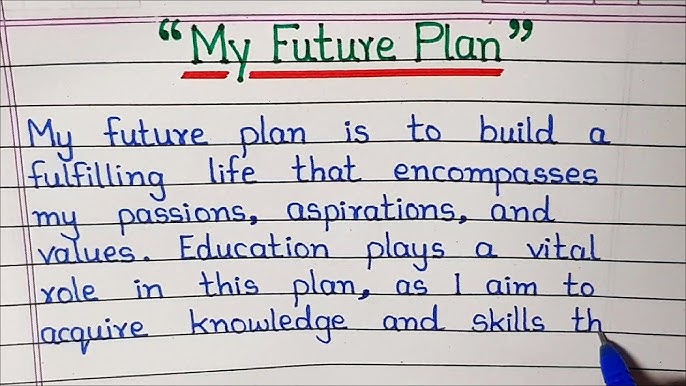 “My Future Plan”
My future plan is to build a
fulfilling life that encompasses
my passions, aspirations, and
values. Education plays a vital
role in this plan, as I aim to
acquire knowledge and skills th